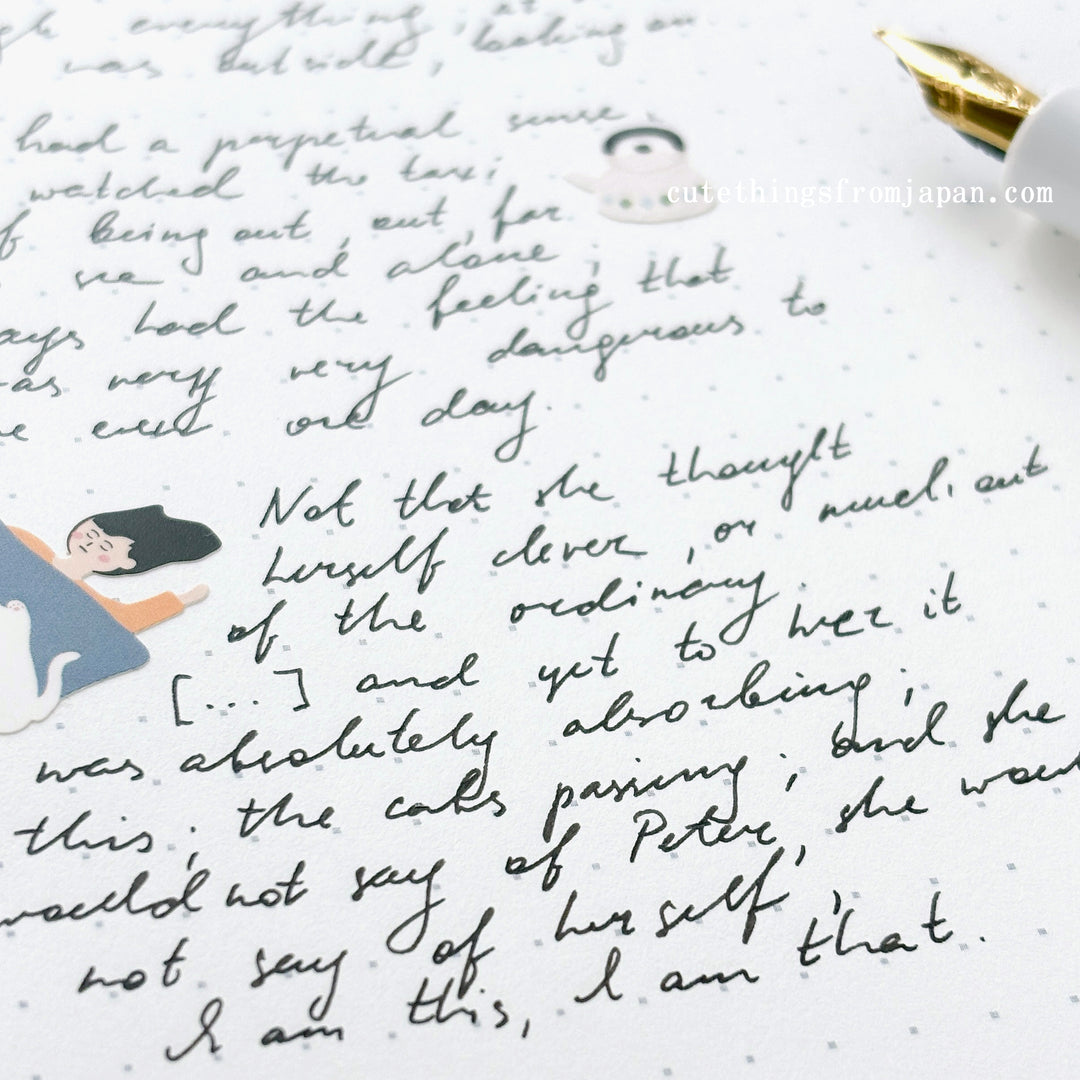 everything, at
was outside, looking on
had a perpetual sense,
cutethingsfromjapan.com
watched the taxi
f being out, out, far
sea and alone;
ays had the feeling that
as very very dangerous to
e even one day.
Not that she thought
herself clever, or much out
of the ordinary.
[...] and yet to her it
was absolutely absorbing;
this; the cabs passing; and she
would not say of Peter, she would
not say of herself,
I am this, I am that.